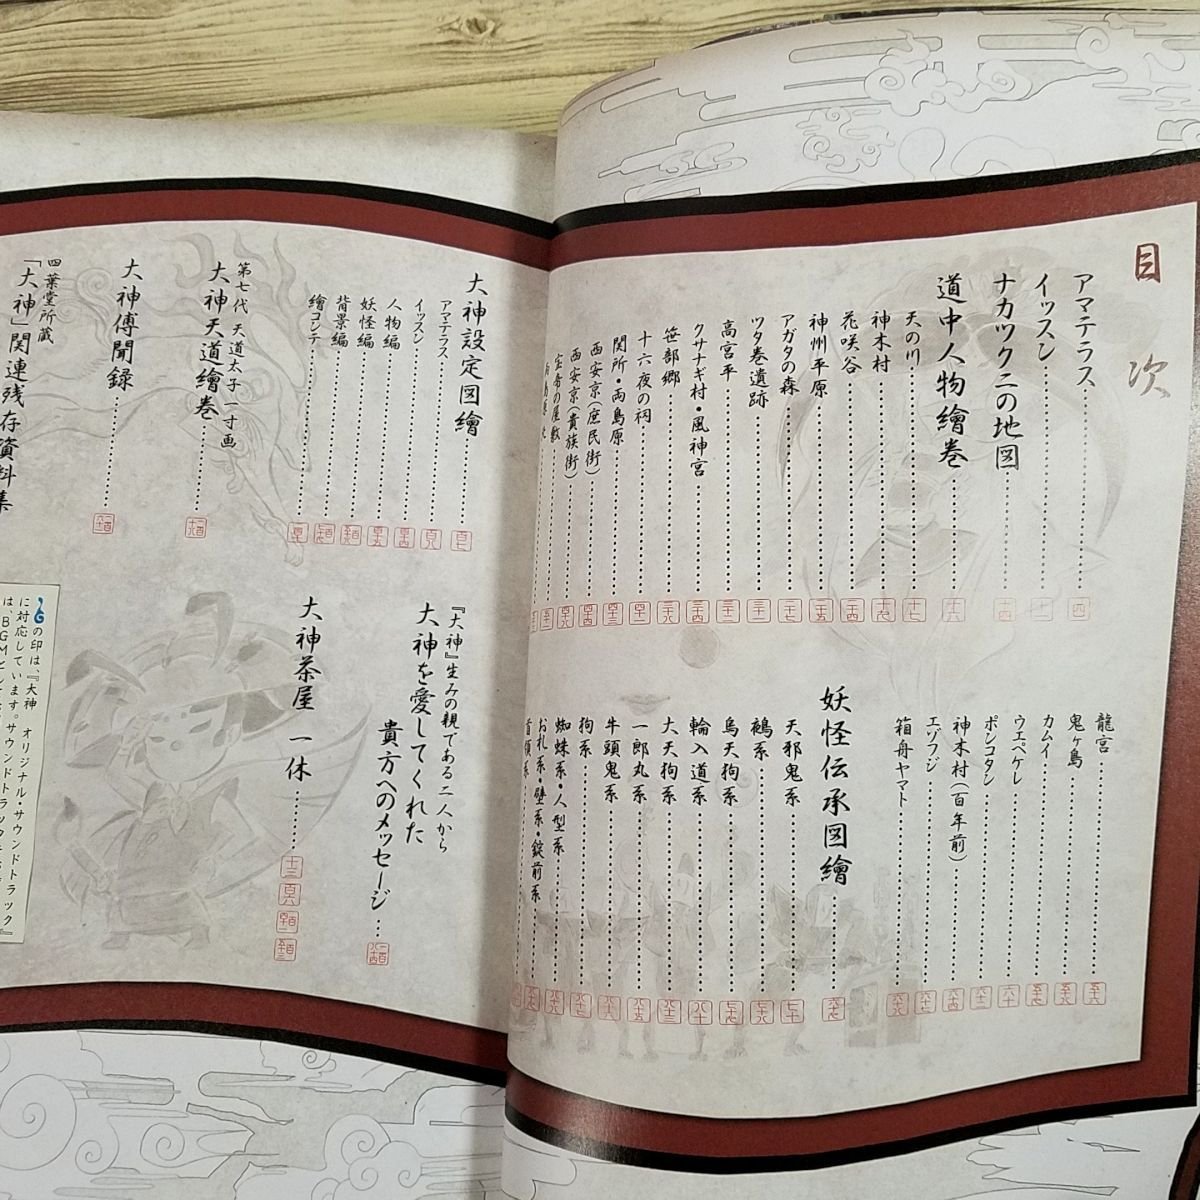 目次
アマテラス
イッスン
ナカツクニの地図
道中人物繪巻
天の川
神木村
花咲谷
神州平原
アガタの森
ツタ巻遺跡
高宮平
クサナギ村・風神宮
笹部郷
十六夜の祠
関所・両島原
西安京(庶民街)
西安京(貴族街)
龍宮
鬼ヶ島
カムイ
ウエペケレ
ポンコタン
神木村(百年前)
エゾフジ
箱舟ヤマト
妖怪伝承図繪
天邪鬼系
鵺系
烏天狗系
輪入道系
大天狗系
一郎丸系
牛頭鬼系
狗系
蜘蛛系・人型系
お札系・壁系・錠前系
首領系
大神設定図繪
アマテラス
イッスン
人物編
妖怪編
背景編
繪コンテ
第七代 天道太子 一寸画
大神天道繪巻
大神傳聞録
四葉堂所蔵
「大神」関連残存資料集
『大神』生みの親である二人から
大神を愛してくれた
貴方へのメッセージ
大神茶屋 一休
の印は、『大神 オリジナル・サウンドトラック』
に対応しています。サウンドトラック